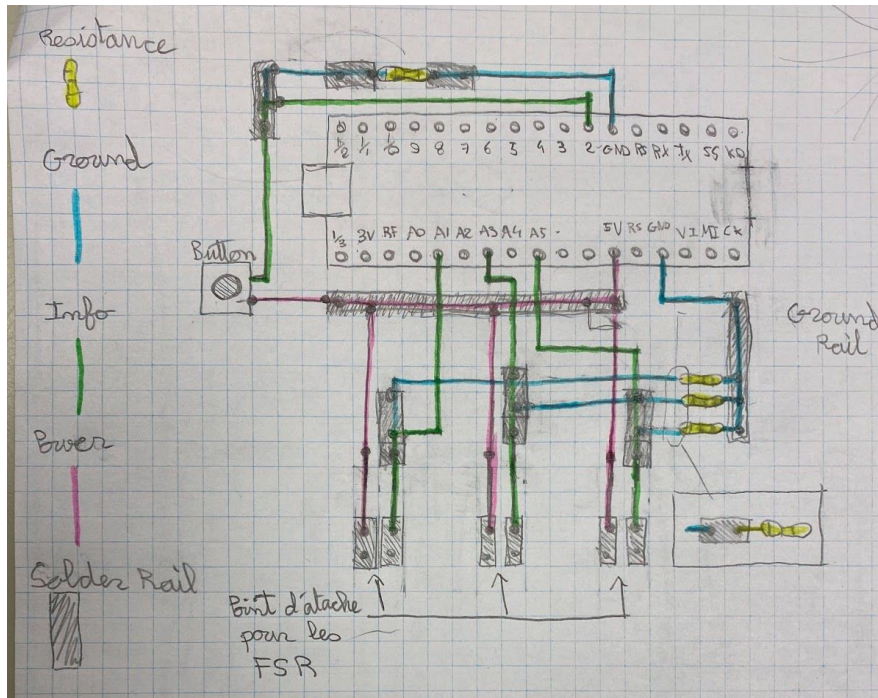 Resistance
Ground
Info
Power
Solder Rail
Button
9 8 7 6 5 4 3 2 GND RS RX TX SS
3V RF A0 A1 A2 A3 A4 A5 - 5V RS GND VI MI CK
Ground
Rail
Point d'atache
pour les
FSR